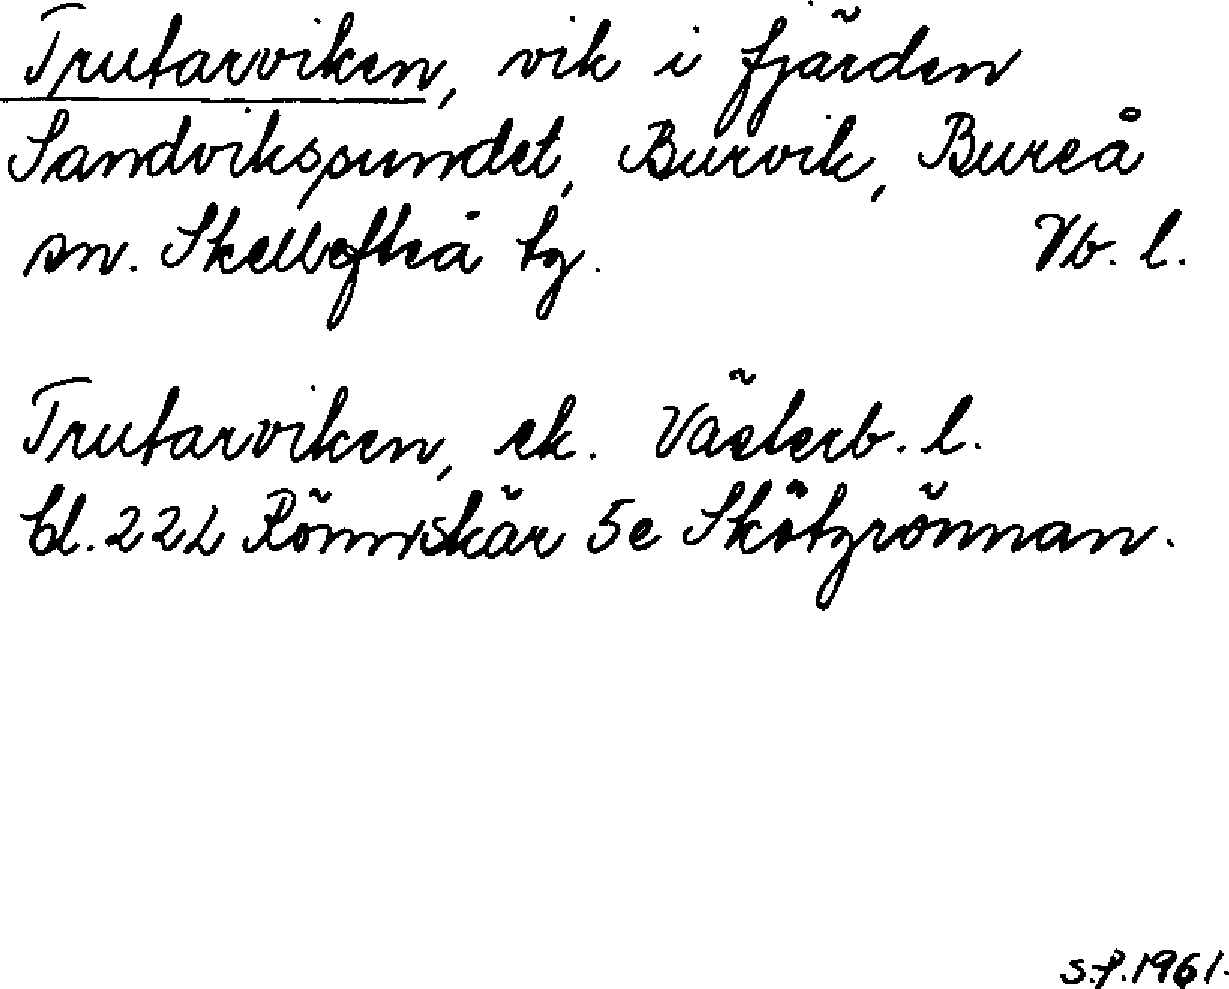 Trutarviken, vik i fjärden
Sandvikssundet, Burvik, Bureå
sn. Skellefteå tg. Vb. l.
Trutarviken, ek. Västerb. l.
bl. 222 Rönnskär 5e Skötgrönnan.
S.P. 1961.